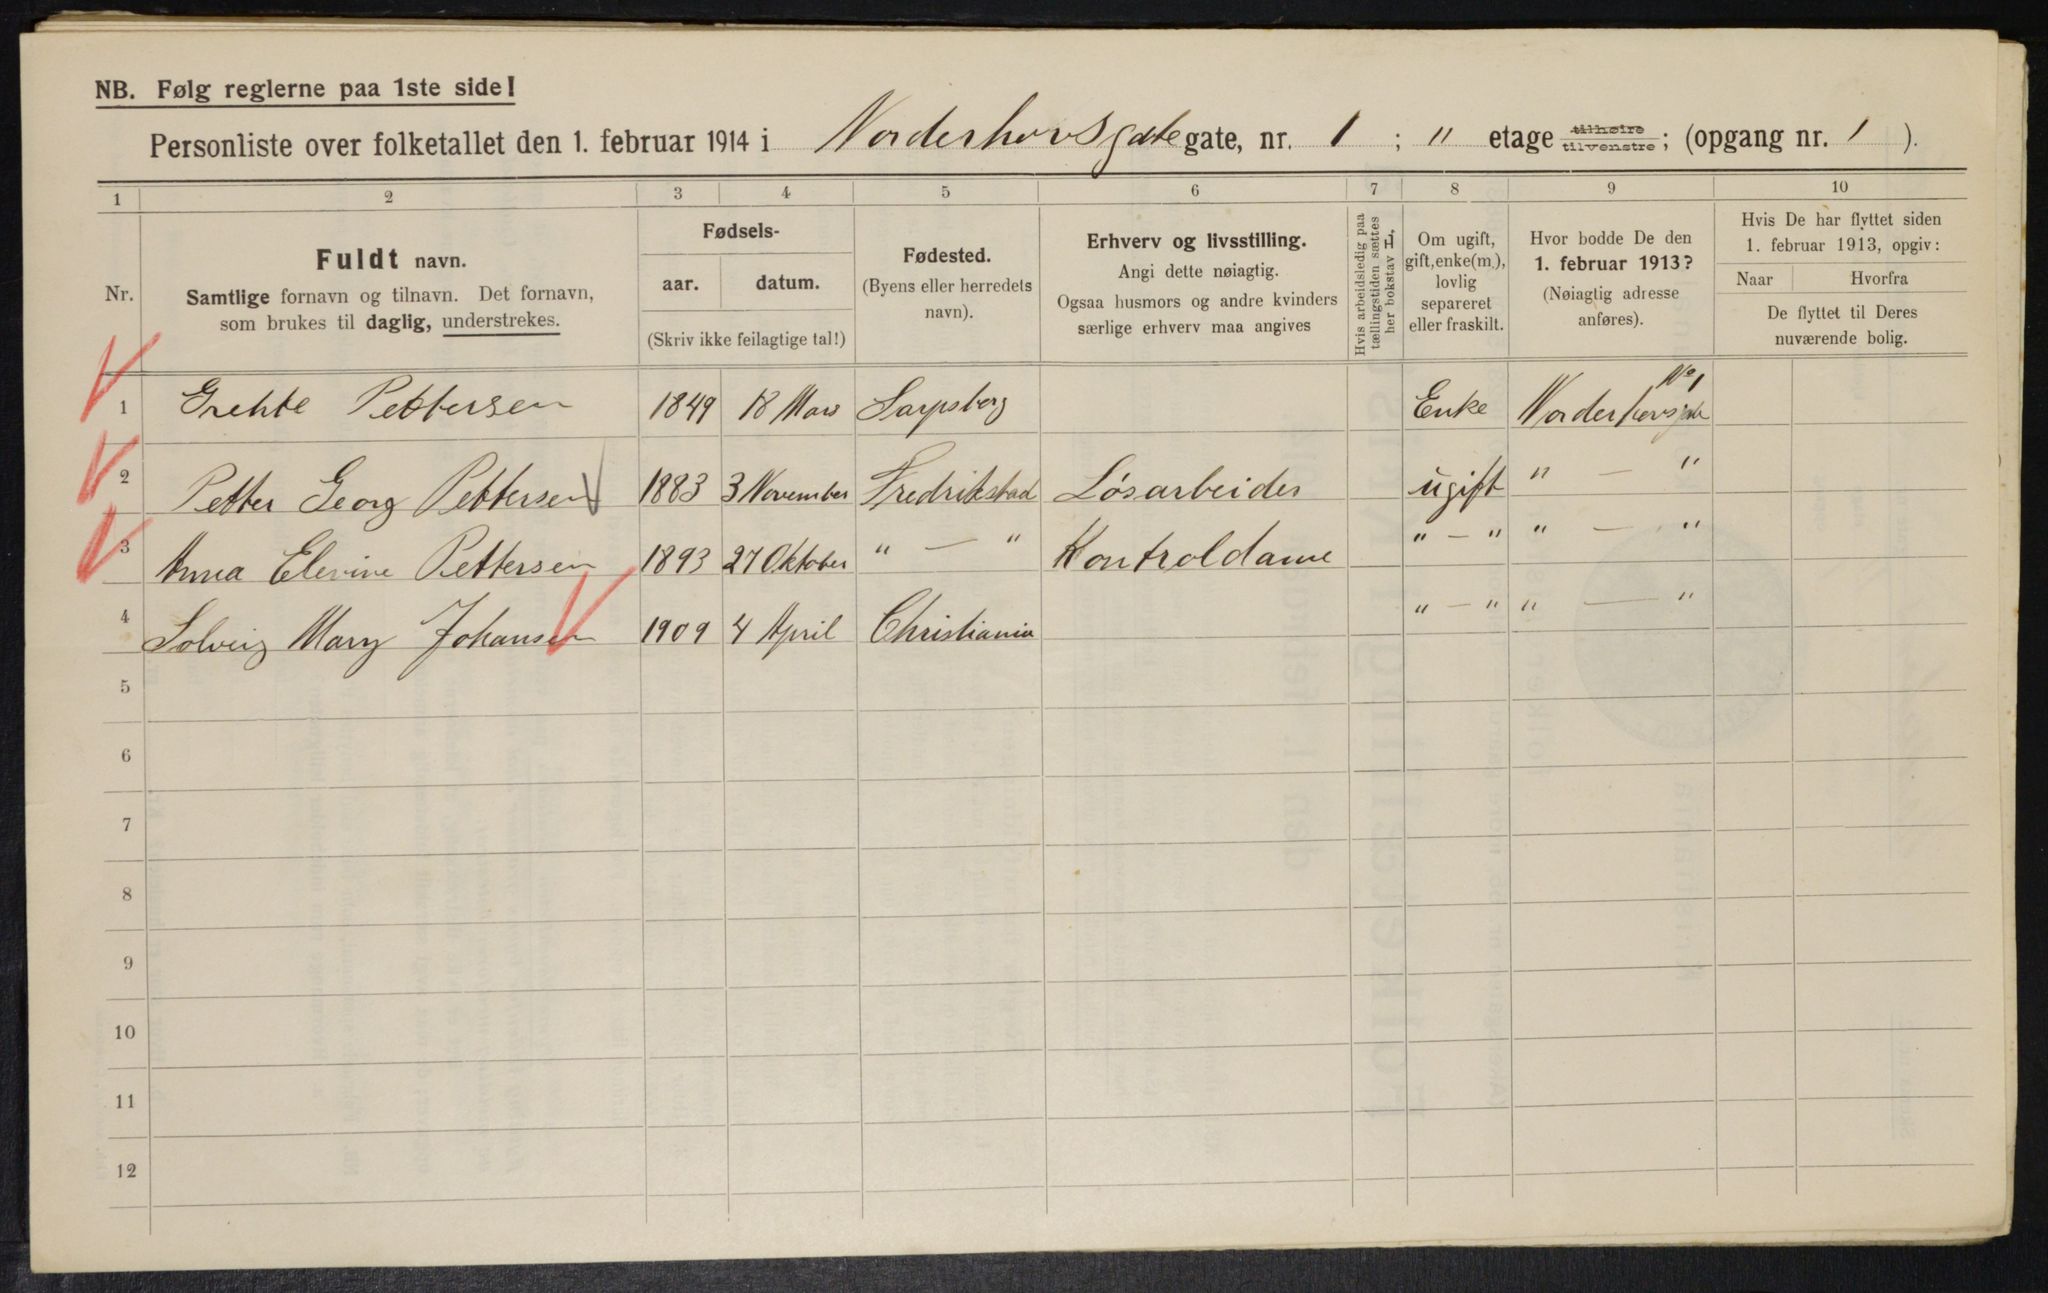 NB. Følg reglerne paa 1ste side!
Personliste over folketallet den 1. februar 1914 i Norderhovsgate gate, nr. 1 ; " etage tilhøire tilvenstre; (opgang nr. 1 ).
1 2 3 4 5 6 7 8 9 10
Nr.
Fuldt navn.
Samtlige fornavn og tilnavn. Det fornavn,
som brukes til daglig, understrekes.
Fødsels-
aar. datum.
(Skriv ikke feilagtige tal!)
Fødested.
(Byens eller herredets
navn).
Erhverv og livsstilling.
Angi dette nøiagtig.
Ogsaa husmors og andre kvinders
særlige erhverv maa angives
Hvis arbeidsledig paa
tællingstiden sættes
her bokstav L.
Om ugift,
gift, enke(m.),
lovlig
separeret
eller fraskilt.
Hvor bodde De den
1. februar 1913?
(Nøiagtig adresse
anføres).
Hvis De har flyttet siden
1. februar 1913, opgiv:
Naar Hvorfra
De flyttet til Deres
nuværende bolig.
1 Grehte Pettersen 1849 18 Mars Sarpsberg Enke Norderhovsgate No 1
2 Petter Georg Pettersen 1883 3 November Fredrikstad Løsarbeider ugift " — "
3 Anna Elevine Pettersen 1893 27 Oktober " — " Kontroldame " — " " — "
4 Solveig Mary Johansen 1909 4 April Christiania " — " " — "
5
6
7
8
9
10
11
12